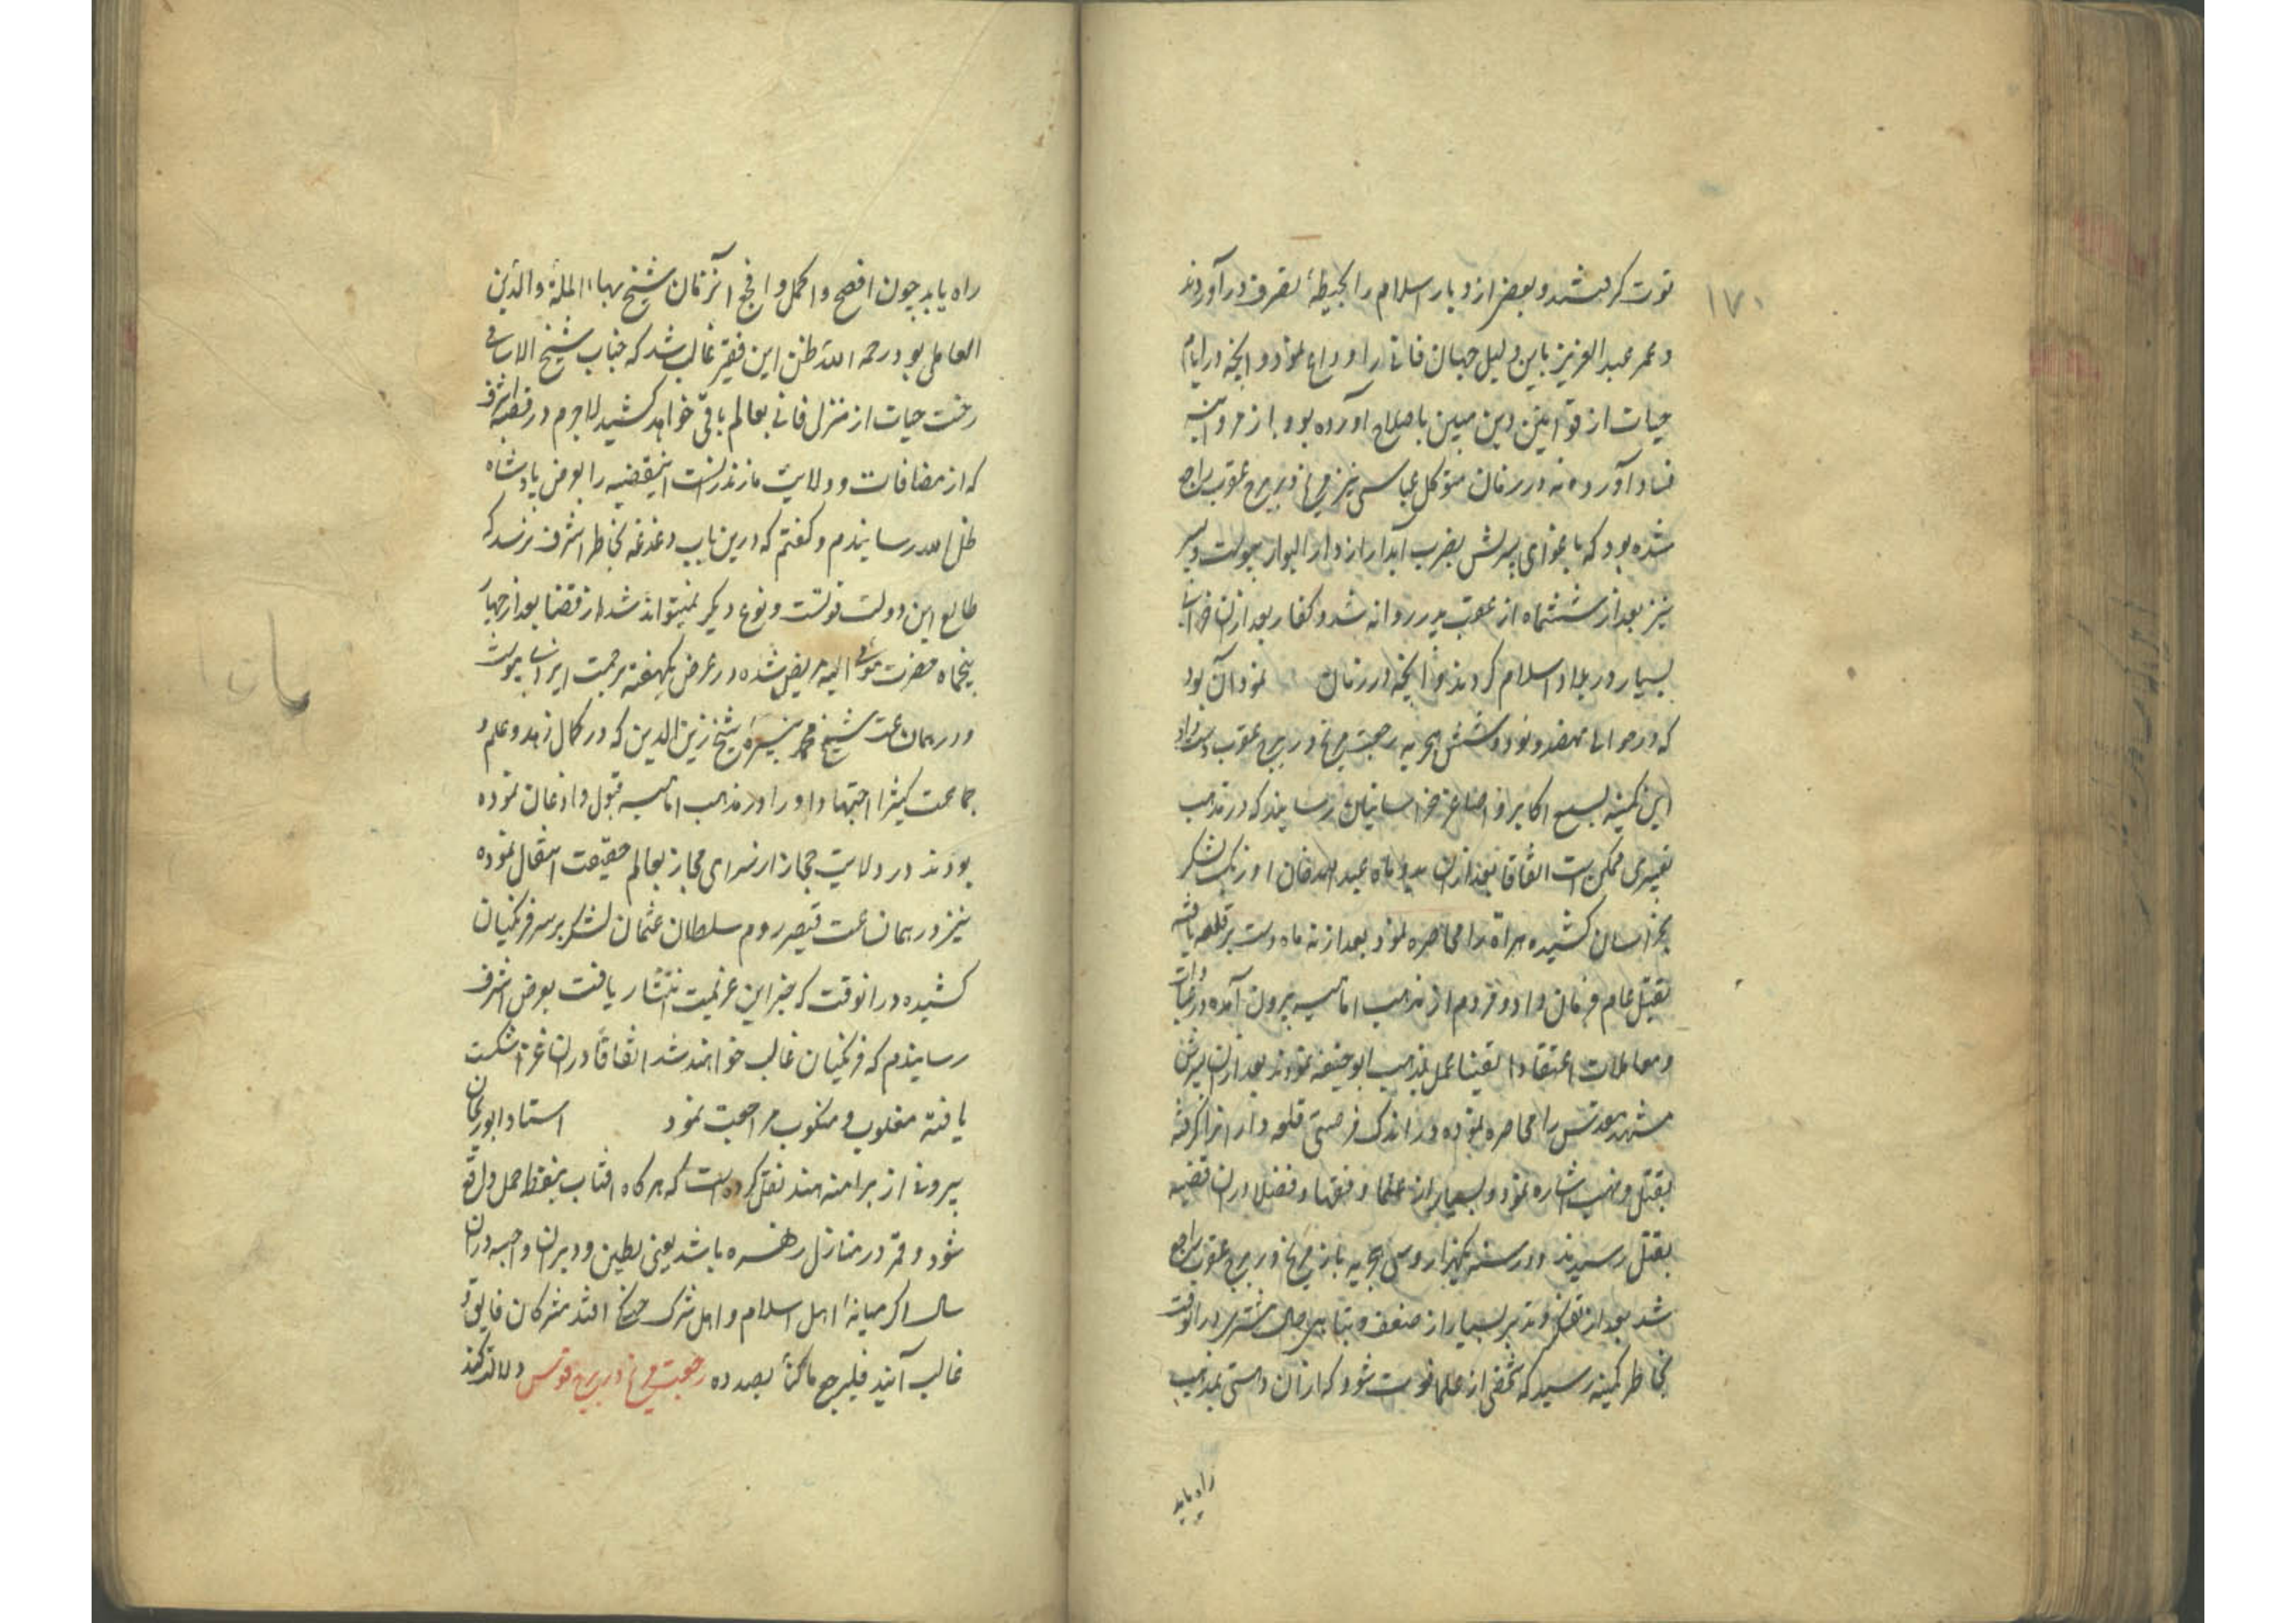 ۱۷۰
قوت گرفتند و بعضی از دیار اسلام را بحیطهٔ تصرف درآوردند
و عمر عبدالعزیز باین دلیل جهان فانی را وداع نمود و آنچه در ایام
حیات از قوانین دین مبین باصلاح آورده بود باز مروانیه
فساد آوردند در زمان متوکل عباسی نیز مریخ در برج عقرب راجع
شده بود که باغوای پسرش بضرب آبدار از دار البوار پیوست و پسر
نیز بعد از ششماه از عقب پدر روانه شد و کفار بعد از ان
بسیار در بلاد اسلام کردند و آنچه در زمان نمود آن بود
که در حوالی نهصد و نود و شش هجریه رجعت مریخ در برج عقرب
این کمینه بسمع اکابر و اصاغر خراسانیان رسانید که در مذهب
تغییری ممکن است اتفاقا بعد از ان ماه عبدالله خان اوزبک لشکر
بخراسان کشیده هراة را محاصره نمود بعد از نه ماه دست بر قلعه یافته
بقتل عام فرمان داد و مردم از مذهب امامیه بیرون آمده در عبادات
و معاملات اعتقادا یقینا عمل بمذهب ابوحنیفه نمودند بعد از ان پسرش
مشهد مقدس را محاصره نموده در اندک فرصتی قلعه دار انرا گرفته
بقتل و نهب اشاره نمود و بسیار از علما و فقها و فضلا دران قضیه
بقتل رسیدند و در سنه یکهزار و سی هجریه باز مریخ در برج عقرب راجع
شد بعد از تفکر و تدبر بسیار از ضعف و تباهی حال مشتری در انوقت
بخاطر کمینه رسید که شخصی از علما فوت شود که ازان وهنی بمذهب
راه یابد
راه یابد چون افصح و اکمل و انجح آنزمان شیخ بهاء الملة والدین
العاملی بود رحمه الله ظن این فقیر غالب شد که جناب شیخ الاسلامی
رخت حیات از منزل فانی بعالم باقی خواهد کشید لاجرم در قصبه اشرف
که از مضافات و ولایت مازندرانست اینقضیه را بعرض پادشاه
ظل الله رسانیدم و گفتم که درین باب دغدغه بخاطر اشرف نرسد که
طالع این دولت قویست و نوع دیگر نمیتواند شد از قضا بعد از چهار
پنجماه حضرت مومی الیه مریض شده در عرض یکهفته برحمت ایزدی پیوست
و در همان سنت شیخ محمد نبیره شیخ زین الدین که در کمال زهد و علم و
جماعت کثیرا اجتهاد او را در مذهب امامیه قبول و اذعان نموده
بودند در ولایت حجاز از سرای مجاز بعالم حقیقت انتقال نموده
نیز در همان سنت قیصر روم سلطان عثمان لشکر بر سر فرنکیان
کشیده در انوقت که خبر این عزیمت انتشار یافت بعرض اشرف
رسانیدم که فرنکیان غالب خواهند شد اتفاقاً دران غزا شکست
یافته مغلوب و منکوب مراجعت نمود استاد ابوریحان
بیرونی از براهمه هند نقل کرده است که هر گاه افتاب بنقطه حمل واقع
شود و قمر در منازل زهره باشد یعنی بطین و دبران و جبهه دران
سال اگر میانهٔ اهل اسلام و اهل شرک جنگ افتد مشرکان فایق و
غالب آیند فلیرجع ما کنا بصدده رجعت مریخ در برج قوس دلالت کند